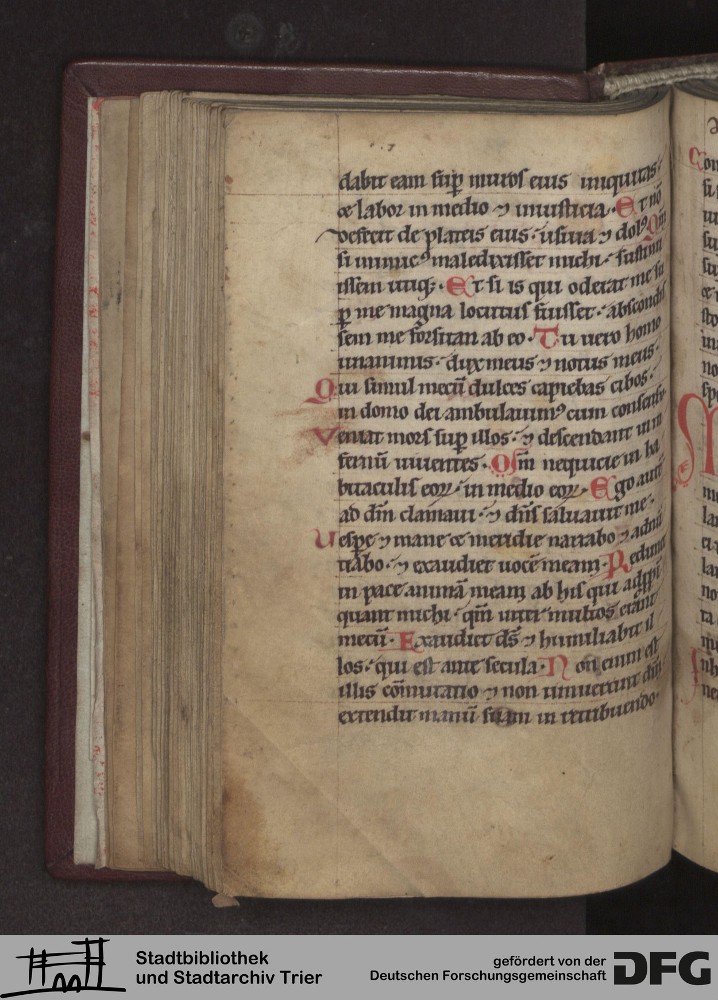 dabit eam sup̄ muros eius iniquitas ·
⁊ labor in medio ⁊ iniusticia · Et nō
defecit de plateis eius · usura ⁊ dolꝰ Qm̄
si inimicꝰ maledixisset michi · sustinu
issem utiq; · Et si is qui oderat me su
ꝑ me magna locutus fuisset · abscondis
sem me forsitan ab eo · Tu vero homo
unanimis · dux meus ⁊ notus meus ·
Qui simul mecū dulces capiebas cibos ·
in domo dei ambulauimꝰ cum consensu
Veniat mors sup̄ illos · ⁊ descendant in in
fernū uiuentes · Qm̄ nequicie in ha
bitaculis eoꝝ · in medio eoꝝ · Ego autē
ad dn̄m clamaui · ⁊ dn̄s saluauit me ·
Vespe ⁊ mane ⁊ meridie narrabo ⁊ adnū
tiabo · ⁊ exaudiet uocē meam · Redimet
in pace animā meam ab his qui adꝓpi
quant michi · qm̄ inter multos erant
mecū · Exaudiet ds̄ ⁊ humiliabit il
los · qui est ante secula · Non enim est
illis cōmutatio ⁊ non timuerunt dm̄ ·
extendit manū suam in retribuendo ·
Stadtbibliothek
und Stadtarchiv Trier
gefördert von der
Deutschen Forschungsgemeinschaft
DFG